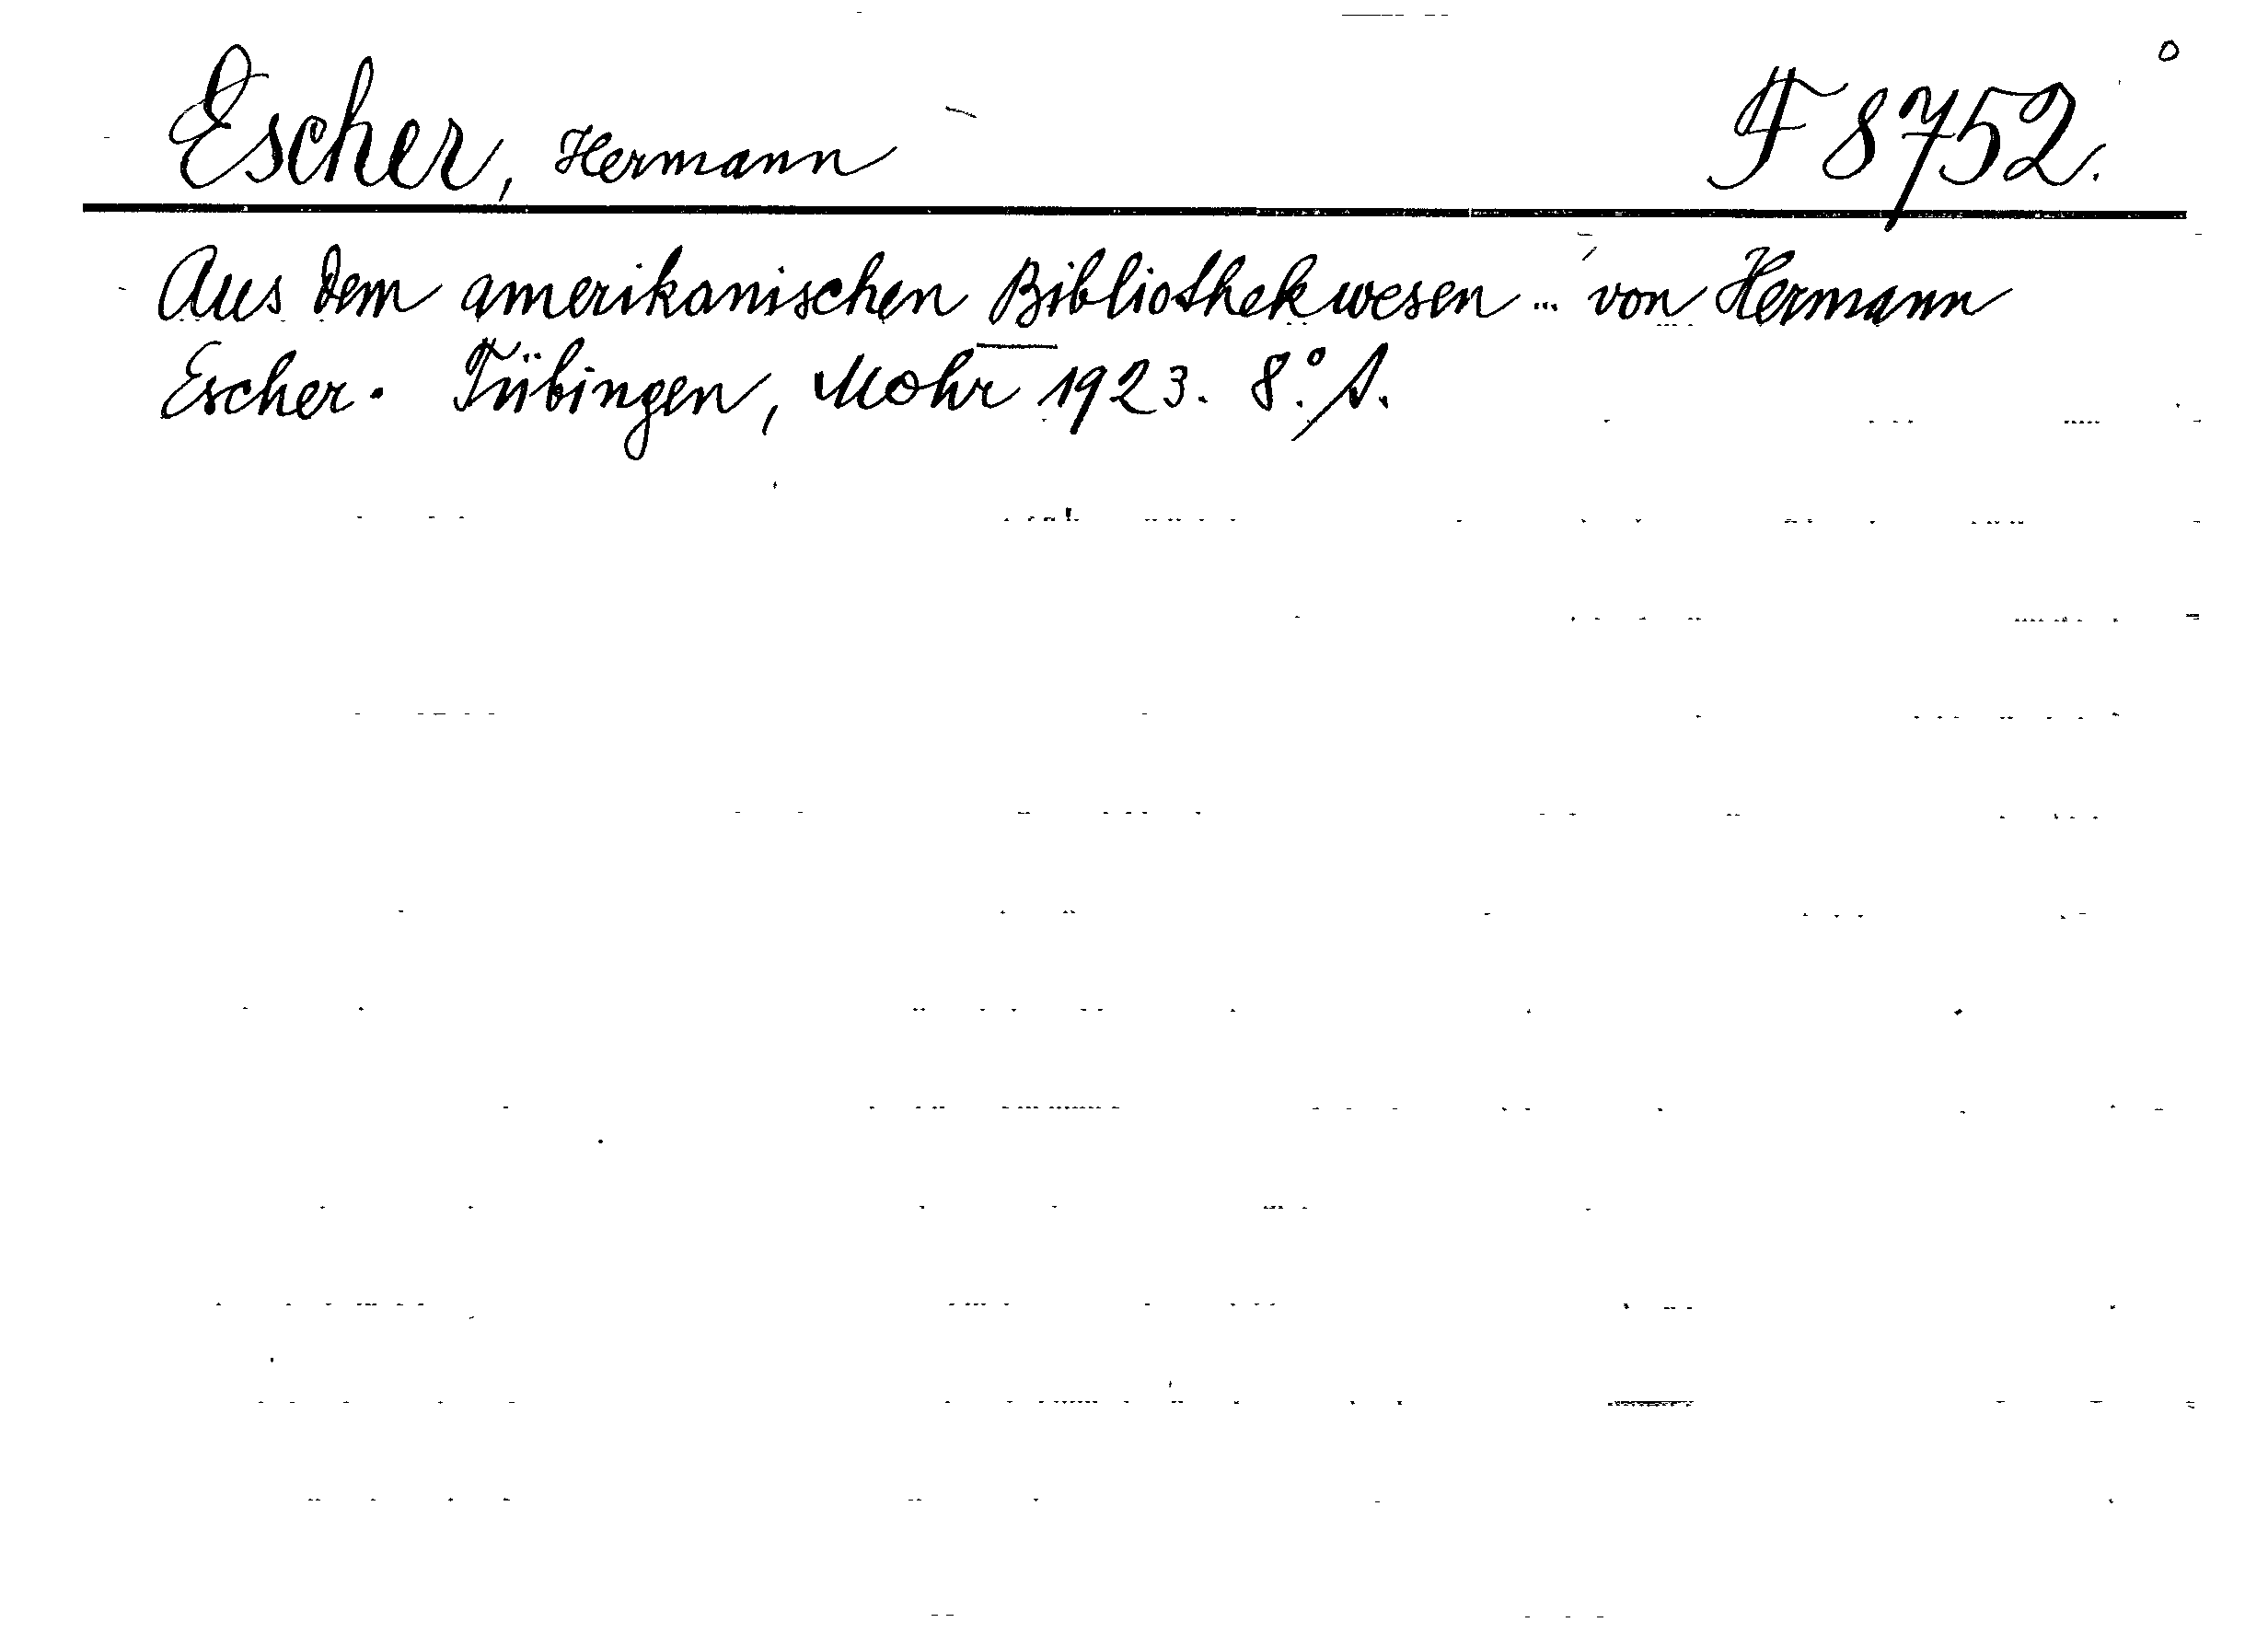 Escher, Hermann F 8752.
Aus dem amerikanischen Bibliothekwesen ... von Hermann
Escher. Tübingen, Mohr 1923. 8°. A.